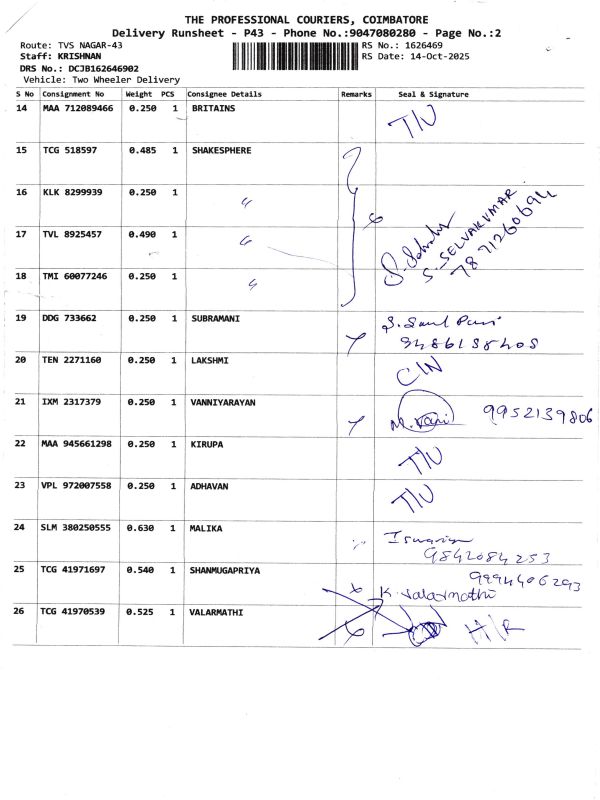 THE PROFESSIONAL COURIERS, COIMBATORE
Delivery Runsheet - P43 - Phone No.:9047080280 - Page No.:2
Route: TVS NAGAR-43 RS No.: 1626469
Staff: KRISHNAN RS Date: 14-Oct-2025
DRS No.: DCJB162646902
Vehicle: Two Wheeler Delivery
S No Consignment No Weight PCS Consignee Details Remarks Seal & Signature
14 MAA 712089466 0.250 1 BRITAINS
15 TCG 518597 0.485 1 SHAKESPHERE
16 KLK 8299939 0.250 1 〃
17 TVL 8925457 0.490 1 〃
S. SELVAKUMAR
7871260694
18 TMI 60077246 0.250 1 〃
19 DDG 733662 0.250 1 SUBRAMANI
9486138408
20 TEN 2271160 0.250 1 LAKSHMI
21 IXM 2317379 0.250 1 VANNIYARAYAN M. Vani 9952139806
22 MAA 945661298 0.250 1 KIRUPA
23 VPL 972007558 0.250 1 ADHAVAN
24 SLM 380250555 0.630 1 MALIKA
9842084253
25 TCG 41971697 0.540 1 SHANMUGAPRIYA 9994406293
K. Valarmathi
26 TCG 41970539 0.525 1 VALARMATHI H/R